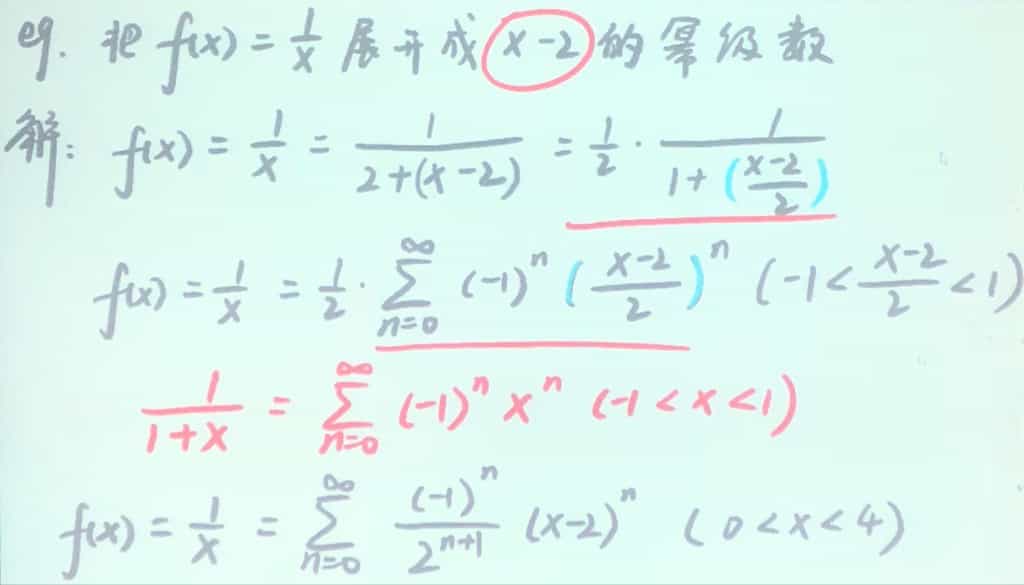 eg. 把 f(x) = 1/x 展开成 x-2 的幂级数
解: f(x) = 1/x = 1/(2+(x-2)) = 1/2 · 1/(1+((x-2)/2))
f(x) = 1/x = 1/2 · ∑_{n=0}^{∞} (-1)^n ((x-2)/2)^n (-1 < (x-2)/2 < 1)
1/(1+x) = ∑_{n=0}^{∞} (-1)^n x^n (-1 < x < 1)
f(x) = 1/x = ∑_{n=0}^{∞} (-1)^n/2^{n+1} (x-2)^n (0 < x < 4)